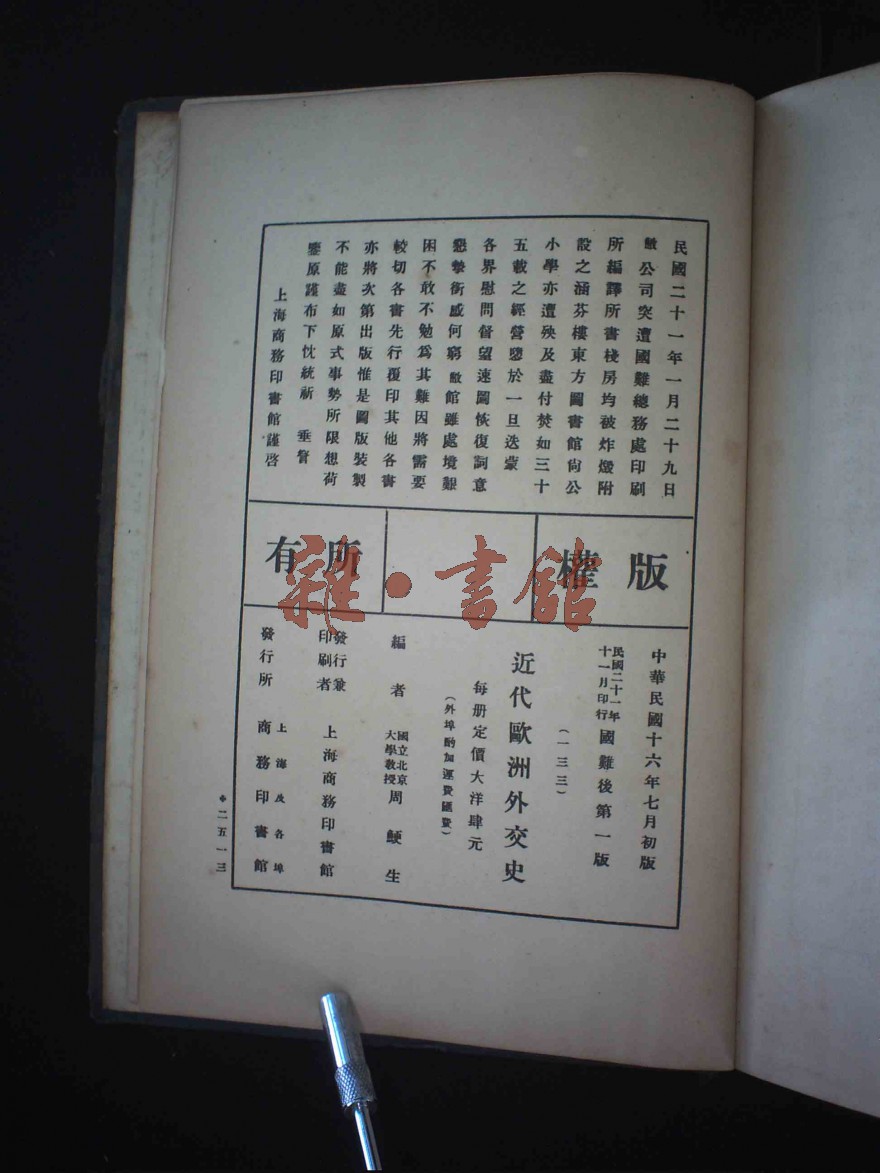 民國二十一年一月二十九日
敝公司突遭國難總務處印刷
所編譯所書棧房均被炸燬附
設之涵芬樓東方圖書館尙公
小學亦遭殃及盡付焚如三十
五載之經營隳於一旦迭蒙
各界慰問督望速圖恢復詞意
懇摯銜感何窮敝館雖處境艱
困不敢不勉爲其難因將需要
較切各書先行覆印其他各書
亦將次第出版惟是圖版裝製
不能盡如原式事勢所限想荷
鑒原謹布下忱統祈 垂詧
上海商務印書館謹啓
版權
所有
雜·書館
中華民國十六年七月初版
民國二十一年
十一月印行
國難後第一版
(一三三)
近代歐洲外交史
每册定價大洋肆元
(外埠酌加運費匯費)
編者 國立北京
大學教授 周鯁生
發行兼
印刷者 上海商務印書館
發行所 上海及各埠
商務印書館
◆二五一三